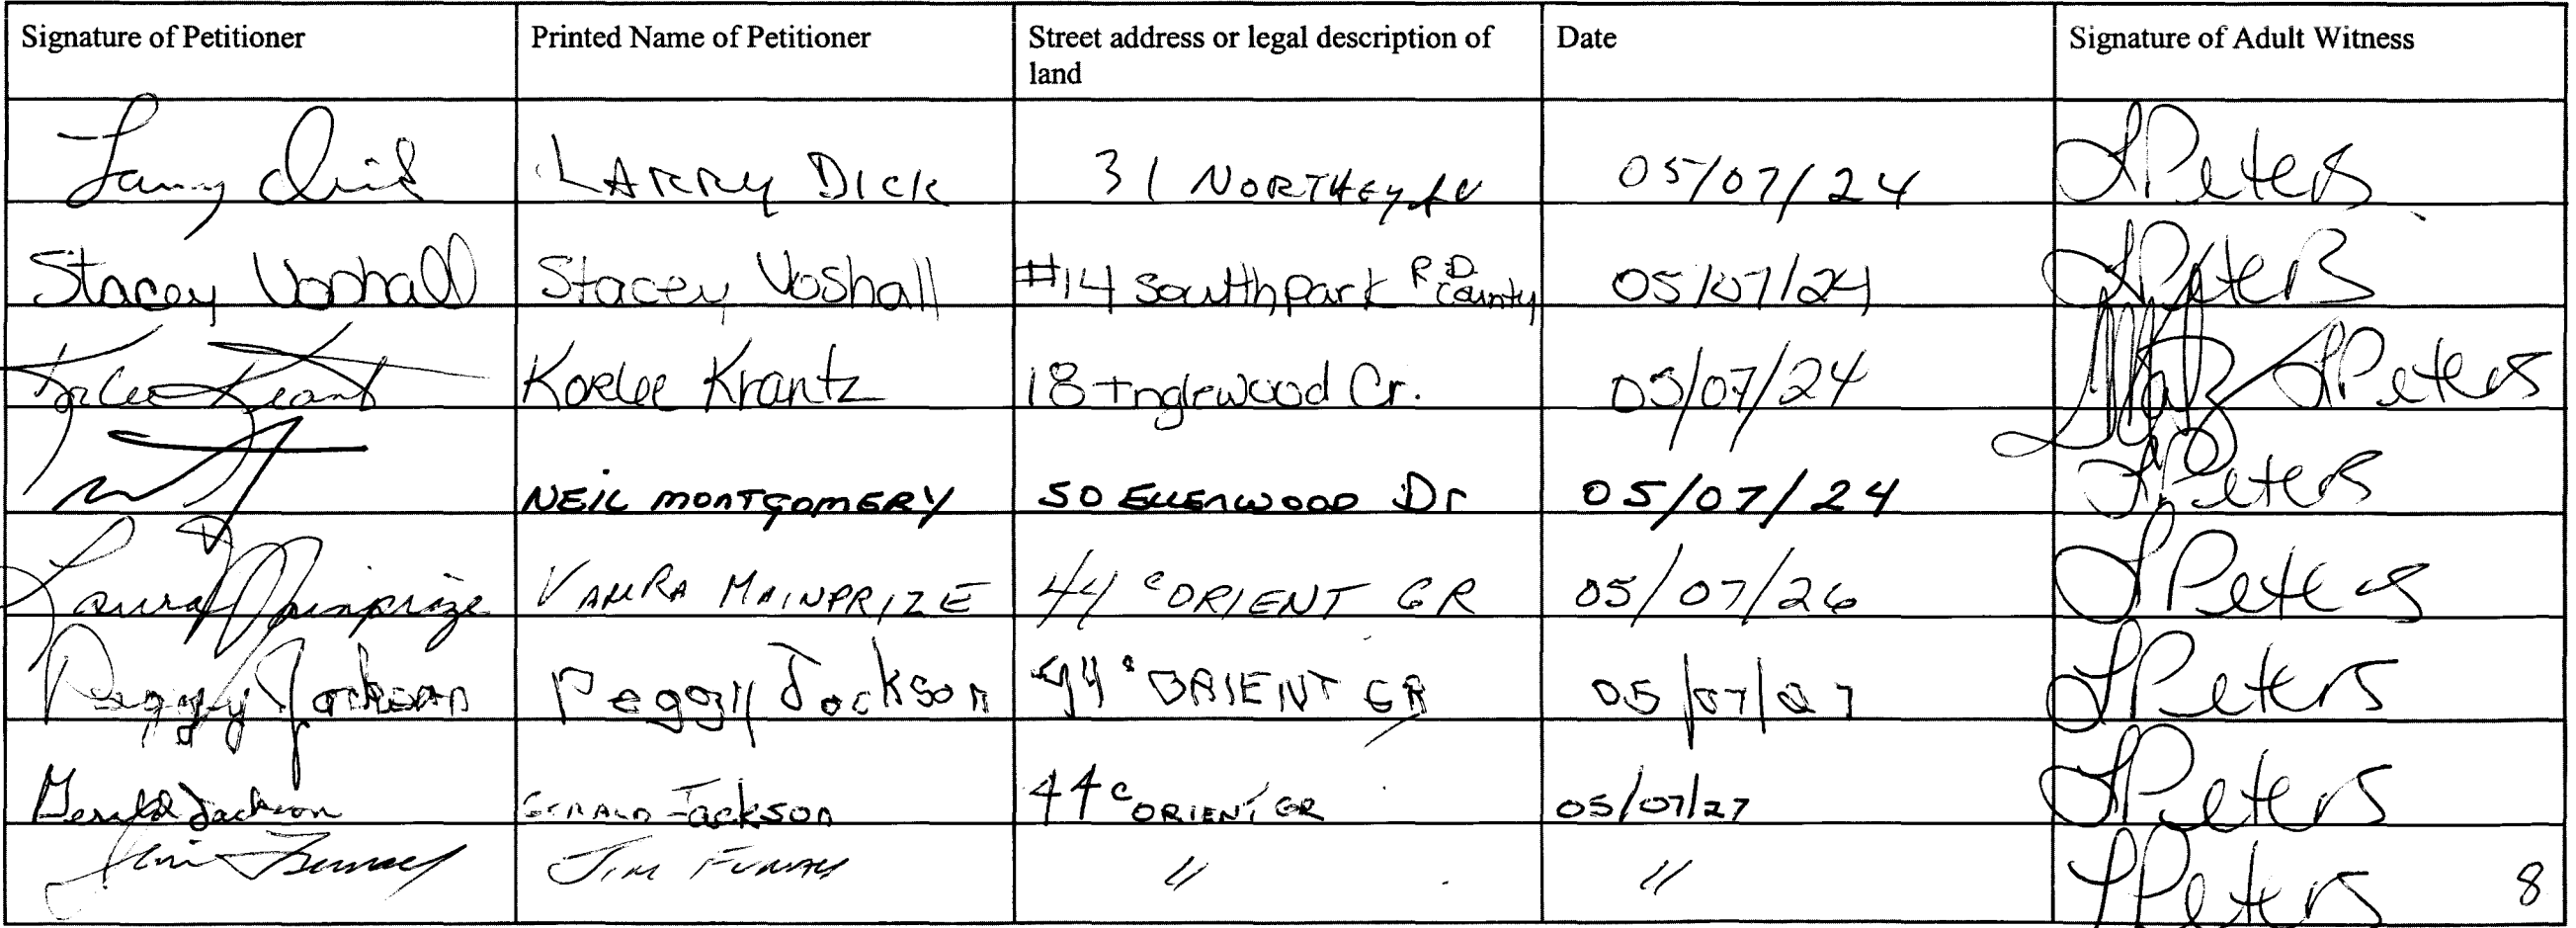 Signature of Petitioner Printed Name of Petitioner Street address or legal description of land Date Signature of Adult Witness
Larry Dick LARRY DICK 31 NORTHEY 05/07/24 L Peters
Stacey Voshall Stacey Voshall #14 South Park RD County 05/07/24 L Peters
Korlee Krantz 18 Inglewood Cr. 05/07/24 L Peters
NEIL MONTGOMERY 50 ELLENWOOD Dr 05/07/24 L Peters
Laura Mainprize MAINPRIZE 44 C ORIENT GR 05/07/26 L Peters
Peggy Jackson Peggy Jackson 44 C ORIENT GR 05/07/27 L Peters
Gerald Jackson GERALD Jackson 44 C ORIENT GR 05/07/27 L Peters
Jim JIM " " L Peters 8